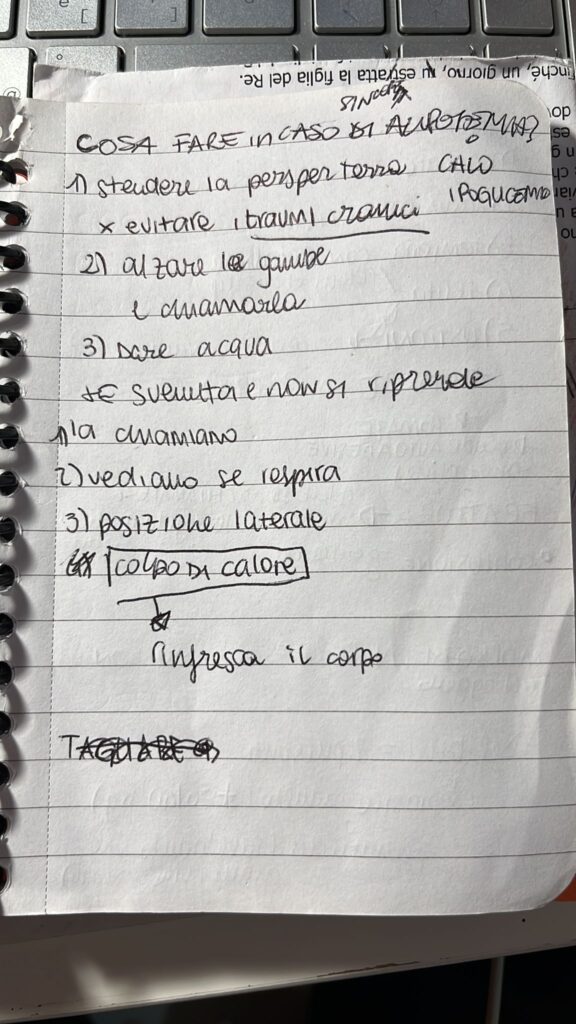 finché, un giorno, fu estratta la figlia del Re.
COSA FARE in CASO DI
1) stendere la pers per terra
CALO
x evitare i traumi cranici
2) alzare le gambe
e chiamarla
3) Dare acqua
SE svenuta e non si riprende
1) la chiamiamo
2) vediamo se respira
3) posizione laterale
COLPO DI calore
Rinfresca il corpo